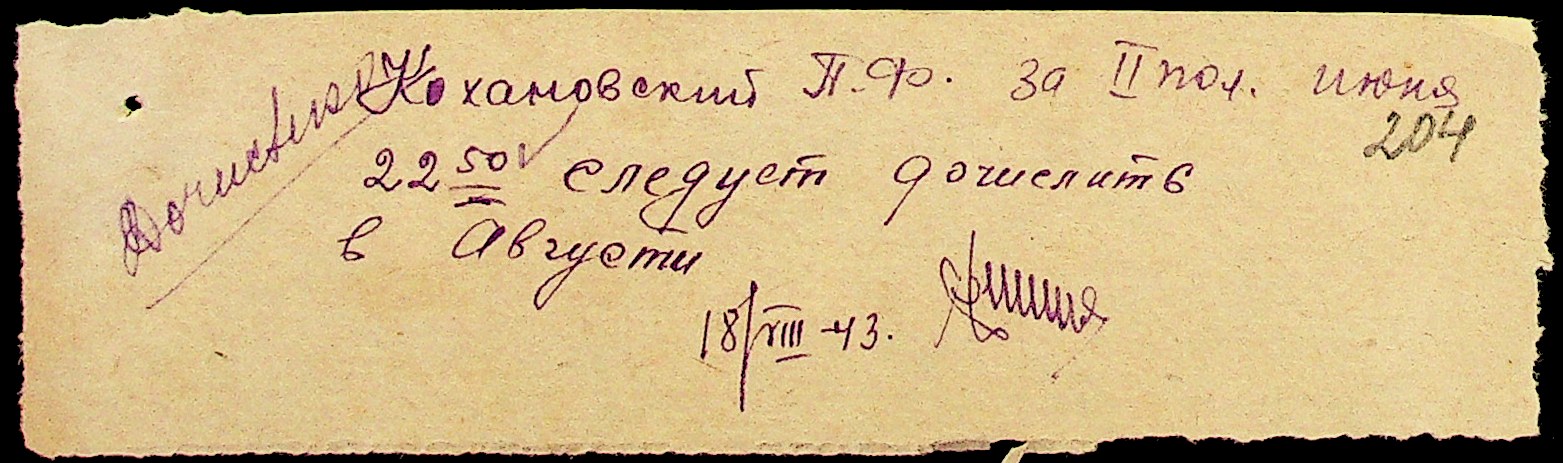 Кохановский П.Ф. за II пол. июня
204
22 50 следует дочислить
в Августи
18/VIII-43.